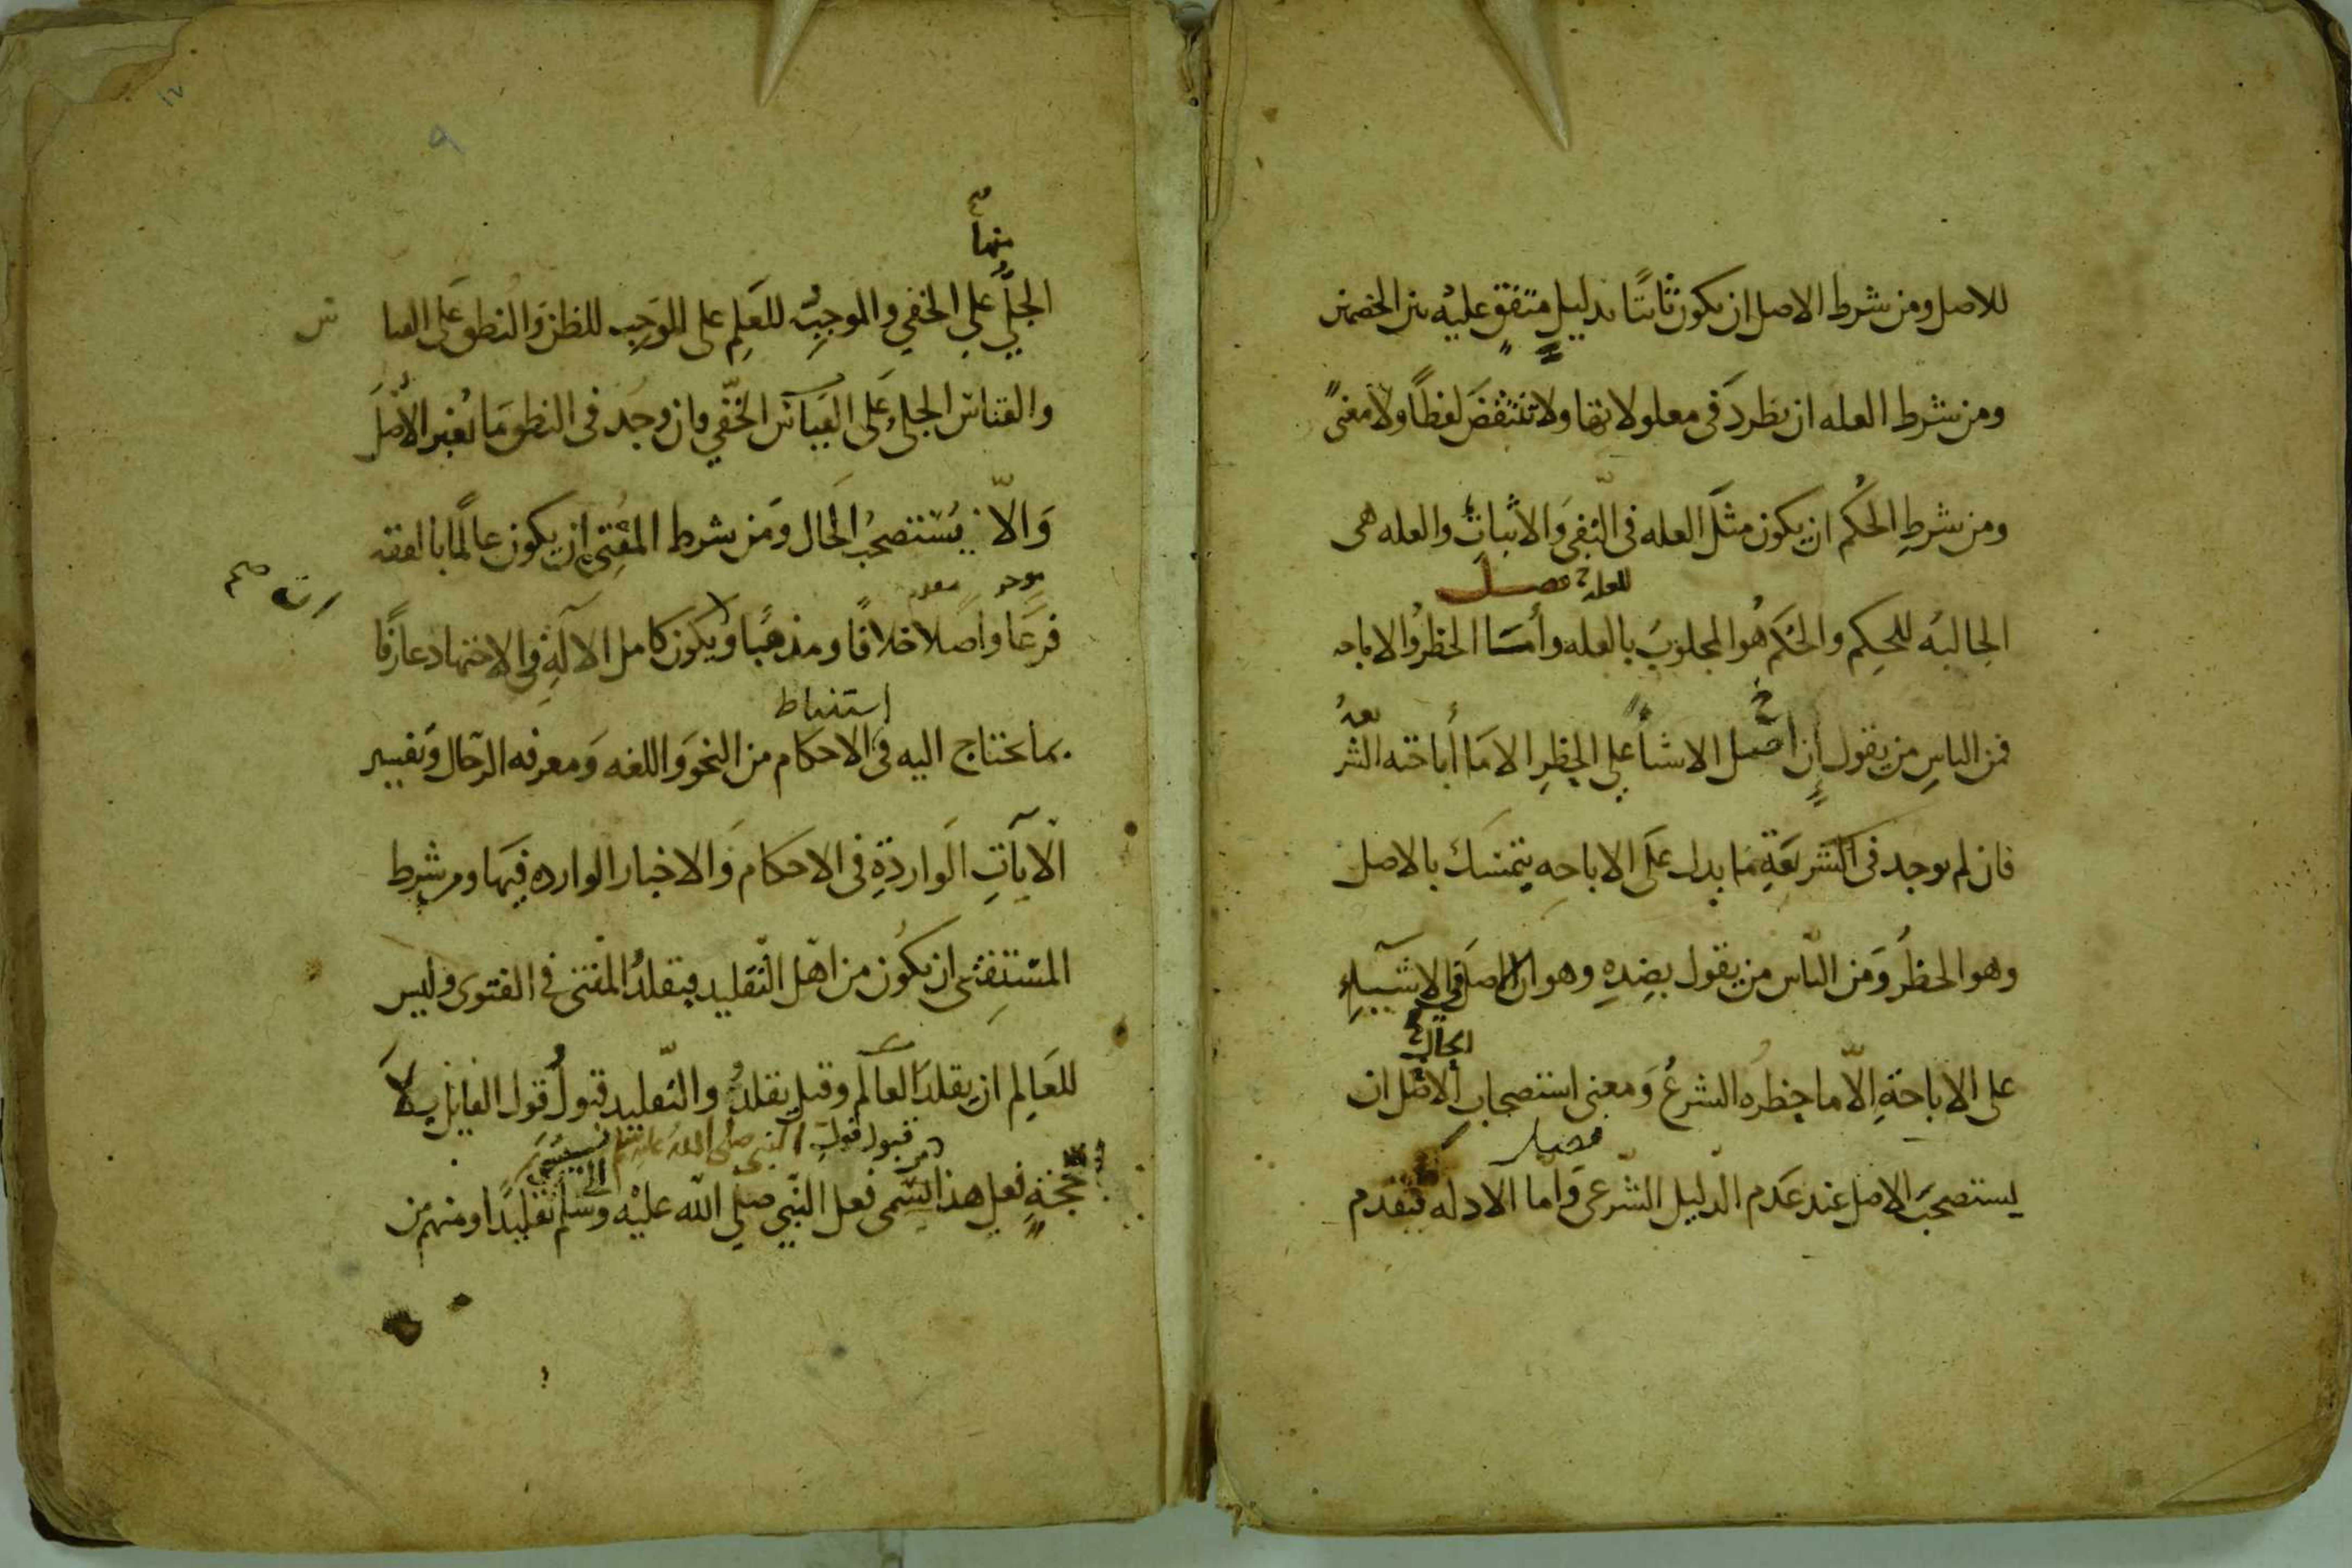 للاصل ومن شرط الاصل ان يكون ثابتًا بدليلٍ متفقٍ عليه بين الخصمين
ومن شرط العله ان تطردَ فى معلولاتها ولا تنتقضَ لفظًا ولا معنىً
ومن شرطِ الحُكم ان يكون مثلَ العله فى النّفىَ والاثباتِ والعله هى
للعله فصل
الجالبهُ للحكِم والحُكم هُو المجلوبَ بالعله وأمّا الحظرُ والاباحه
فمن الناسِ من يقول إن أصل الاشيأ على الحظرِ الا مَا أباحته الشر
يعهُ
فان لم يوجد فى الشريعَةِ مَا يدل علَى الاباحهِ يتمسَك بالاصل
وهو الحظرُ وَمن النّاس من يقول بضِدِهِ وهو ان الاصلَ فى الاشيَآءِ
الحال
على الاباحَةِ الاّ ما حظرُه الشرعُ وَمعنى استصحابِ الاصْل ان
فصل
يستصحَبَ الاصل عند عَدم الدّليل الشّرعى وامّا الادله فيُقدم
١٧
٩
منها صح
الجليُّ علي الخفي والموجِبُ للعَلمِ على الموَجِبِ للظن وَالنُطق عَلى القيا
س
والقياسُ الجلىِ عَلى القيَاسَ الخَفّي وان وجَد فى النطق مَا يُغير الأصْلَ
وَالاّ يُسْتصحبُ الحَال ومَن شرط المفُتِى ان يكون عالمًا بالفقه
فرعًا واصَلًا خلافًا ومذهبًا ويكون كامل الآلَةِ فى الاجتهاد عارفًا
استنباط
بما يحتاج اليه فى الاحكام من النحوَ واللغه وَمعرفه الرّجال وَتفسير
الآيَاتِ الَواردَةِ فى الاحكام وَالاخبار الوارده فيهَا ومن شرط
المسْتِفتى ان يكُون من اهْل التّقليد فيقلدُ المفتى فى الفتوى وليس
للعَالِم ان يقلدَ العَالم وقيل يقلدُ والتّقليد قبولُ قول القائِل بِلاَ
قبول قولِ النبى صلى الله عليه وسلم
حُجّةٍ فعلى هذا يسمى فعل النّبي صلى الله عليْه وَسلم تقليدًا ومنهم من